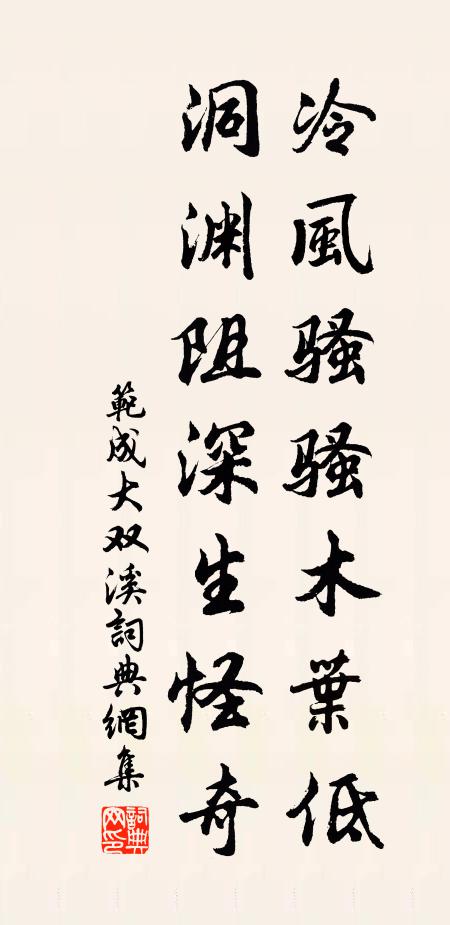 冷風骚骚木葉低
洞渊阻深生怪奇
範成大双溪詞典網集
詞典网印